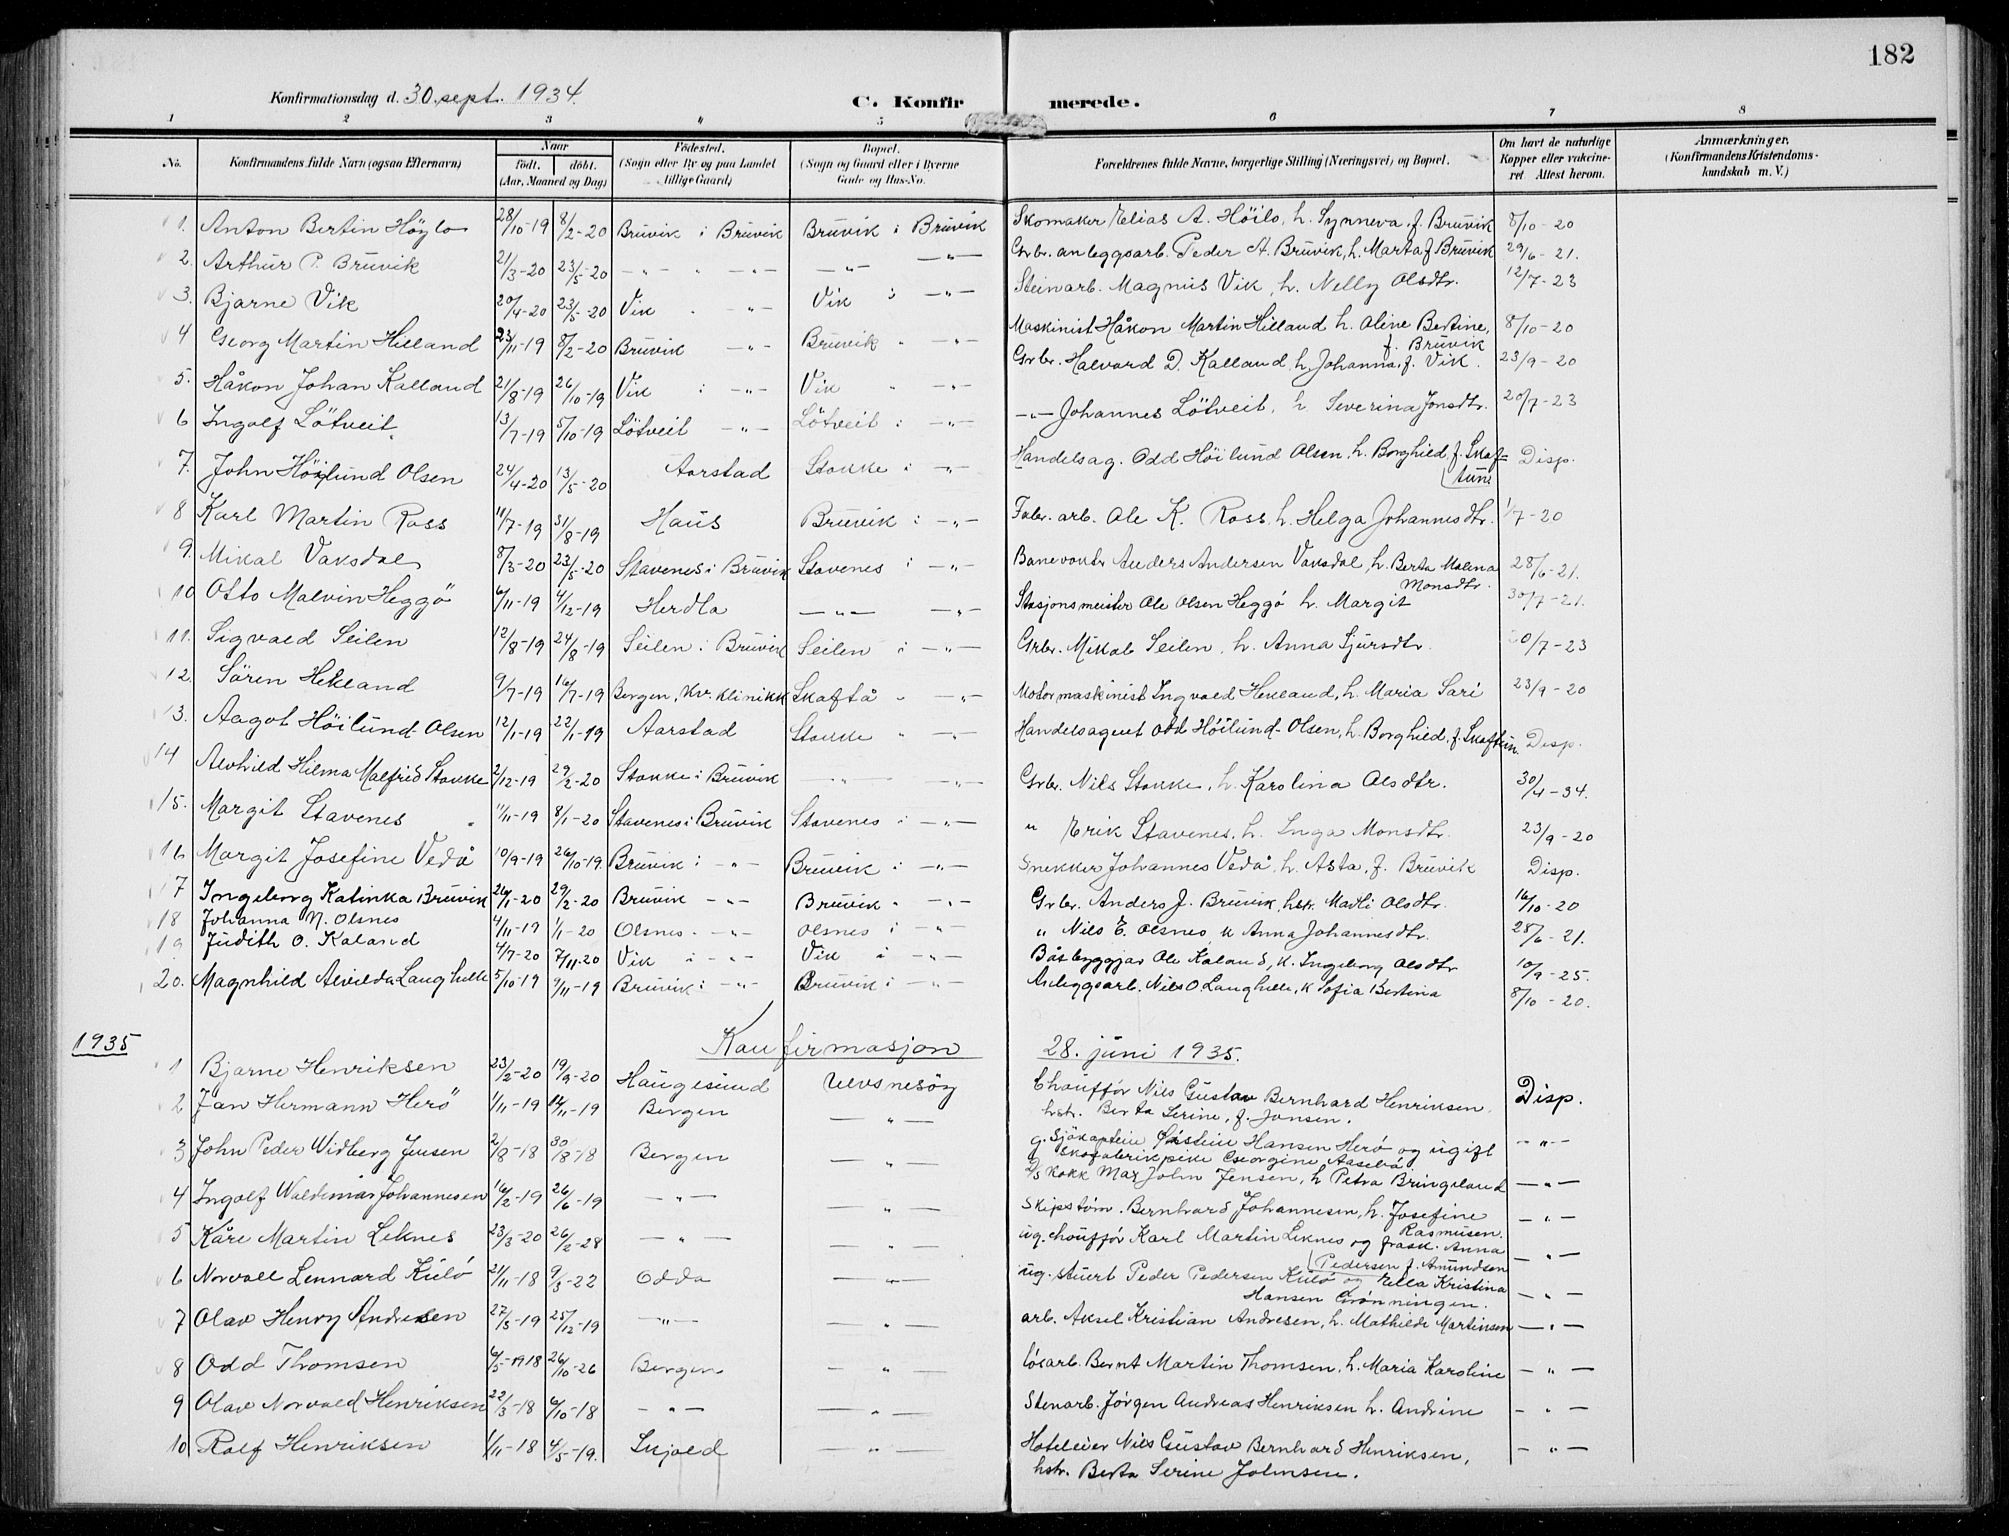 182
Konfirmationsdag d. 30. sept. 1934.
C. Konfirmerede.
1 2 3 " 5 6 7 8
No. Konfirmandens fulde Navn (ogsaa Efternavn) Naar födt. döbt. (Aar, Maaned og Dag) Födested. (Sogn eller By og paa Landet tillige Gaard) Bopæl. (Sogn og Gaard eller i Byerne Gade og Hus-No. Forældrenes fulde Navne, borgerlige Stilling (Næringsvei) og Bopæl. Om havt de naturlige Kopper eller vakcineret Attest herom. Anmærkninger. (Konfirmandens Kristendomskundskab m. V.)
1. Anton Bertin Höylo 28/10-19 8/2-20 Bruvik i Bruvik Bruvik i Bruvik Skomaker Elias A. Höilo, h. Synneva, f. Bruvik 8/10-20
2. Arthur P. Bruvik 21/3-20 23/5-20 -"- " -"- -"- -"- Grbr. anleggsarb. Peder A. Bruvik, h. Marta f Bruvik 29/6-21.
3. Bjarne Vik 20/4-20 23/5-20 Vik -"- Vik i -"- Steinarb. Magnus Vik, h. Nelly Olsdtr. 12/7-23
4 Georg Martin Hilland 23/11-19 8/2-20 Bruvik -"- Bruvik -"- Maskinist Håkon Martin Hilland h. Aline Bertine, f. Bruvik 8/10-20
5. Håkon Johan Kalland 21/8-19 26/10-19 Vik i -"- Vik -"- Grbr. Halvard D. Kalland, h. Johanna, f. Vik. 23/9-20
6 Ingolf Lötveit 13/7-19 5/10-19 Lötveit -"- Lötveit i -"- -"- Johannes Lötveit, h. Severina Jonsdtr. 20/7-23
7. John Höilund Olsen 24/4-20 13/5-20 Aarstad Stokke i -"- Handelsag. Odd Höilund Olsen, h. Borghild, f. Skaftun Disp.
8 Karl Martin Ross 11/7-19 31/8-19 Haus Bruvik i -"- Fabr. arb. Ole K. Ross, h. Helga Johannesdtr. 1/7-20
9. Mikal Vaksdal 8/3-20 23/5-20 Stavenes i Bruvik Stavenes i -"- Banevoktr Anders Andersen Vaksdal, h. Berta Malena Monsdtr. 28/6-21.
10 Otto Malvin Heggö 6/11-19 4/12-19 Herdla -"- -"- Stasjonsmeister Ole Olsen Heggö h. Margit 30/7-21.
11. Sigvald Seilen 12/8-19 24/8-19 Seilen i Bruvik Seilen i -"- Grbr. Mikal Seilen, h. Anna Sjursdtr. 20/7-23
12. Sören Hekland 9/7-19 16/7-19 Bergen, Kv. klinikk Skaftå -"- Motormaskinist Ingvald Hekland, h. Maria Sari 23/9-20
13. Aagot Höilund-Olsen 12/1-19 22/1-19 Aarstad Stokke " -"- Handelsagent Odd Höilund-Olsen, h. Borghild, f. Skaftun. Disp.
14 Alvhild Hilma Malfrid Stokke 2/12-19 29/2-20 Stokke i Bruvik -"- -"- Grbr. Nils Stokke, h. Karolina Olsdtr. 30/4-34.
15. Margit Stavenes 11/11-19 8/1-20 Stavenes i Bruvik Stavenes i -"- " Erik Stavenes, h. Inga Monsdtr. 23/9-20
16 Margit Josefine Vedå 10/9-19 26/10-19 Bruvik i -"- Bruvik i -"- Snekker Johannes Vedå, h. Asta, f. Bruvik Disp.
17 Ingeborg Katinka Bruvik 26/1-20 29/2-20 Bruvik -"- Bruvik -"- Grbr. Anders J. Bruvik, hstr. Madli Olsdtr. 16/10-20
18 Johanna N. Olsnes 4/11-19 1/1-20 Olsnes -"- Olsnes i -"- " Nils E. Olsnes, k Anna Johannesdtr. 28/6-21.
19 Judith O. Kaland 4/7-20 7/11-20 Vik i -"- Vik i -"- Båtbyggjar Ole Kaland, k. Ingeborg Olsdtr 10/9-25.
20. Magnhild Alvilda Langhelle 5/10-19 9/11-19 Bruvik i -"- Bruvik i -"- Anleggsarb. Nils O. Langhelle, k Sofia Bertina 8/10-20.
1935 Konfirmasjon 28. juni 1935.
1 Bjarne Henriksen 23/2-20 19/9-20 Haugesund Ulvsnesöy Chouffør Nils Gustav Bernhard Henriksen, hstr. Berta Serine, f. Jonsen. Disp.
2 Jan Hermann Herö 1/11-19 14/11-19 Bergen -"- g. Sjökaptein Hansen Herö og ugift skofabrikpike Georgine Aasebö -"-
3 John Peder Widberg Jensen 2/8-18 30/8-18 Bergen -"- d/s kokk Max John Jensen, h Petra Bringeland -"-
4 Ingolf Waldemar Johannesen 16/2-19 26/6-19 -"- -"- Skipstöm. Bernhard Johannesen, h. Josefine Rasmusen. -"-
5 Kåre Martin Leknes 23/3-20 26/2-28 -"- -"- ug. chouffør Karl Martin Leknes og frask. Anna Pedersen f. Amundsen -"-
6 Norvall Lennard Kulö 21/11-18 9/3-22 Odda -"- ug. stuert Peder Pedersen Kulö og Ella Kristina Hansen Grönningen. -"-
7 Olav Henry Andresen 27/5-19 25/12-19 -"- -"- arb. Aksel Kristian Andresen, h. Mathilde Martinsen -"-
8 Odd Thomsen 6/5-1918 26/10-26 Bergen -"- lösarb. Bernt Martin Thomsen, h. Maria Karoline -"-
9 Olav Norvald Henriksen 22/3-18 6/10-18 -"- -"- Stenarb. Jørgen Andreas Henriksen h. Andrine -"-
10 Rolf Henriksen 1/11-18 4/5-19. Skjold -"- Hoteleier Nils Gustav Bernhard Henriksen, hstr. Berta Serine Johnsen. -"-